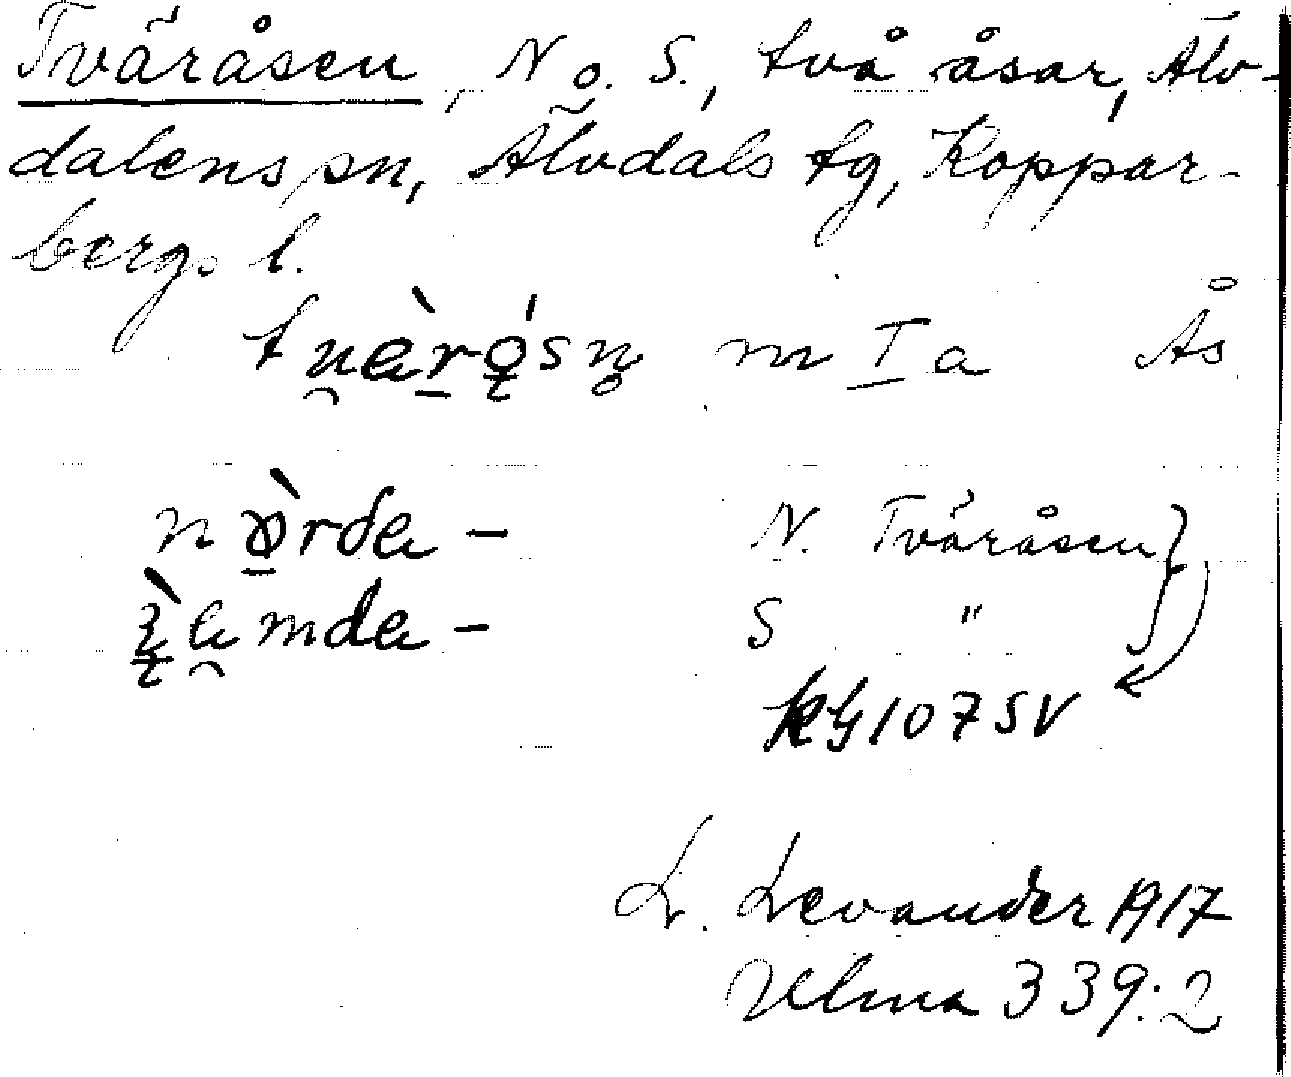 Tväråsen, N o. S., två åsar, Älv-
dalens sn, Älvdals tg, Koppar-
bergs l.
m I a Ås
N. Tväråsen
S "
KG 107 SV
L. Levander 1917
Ulma 339:2